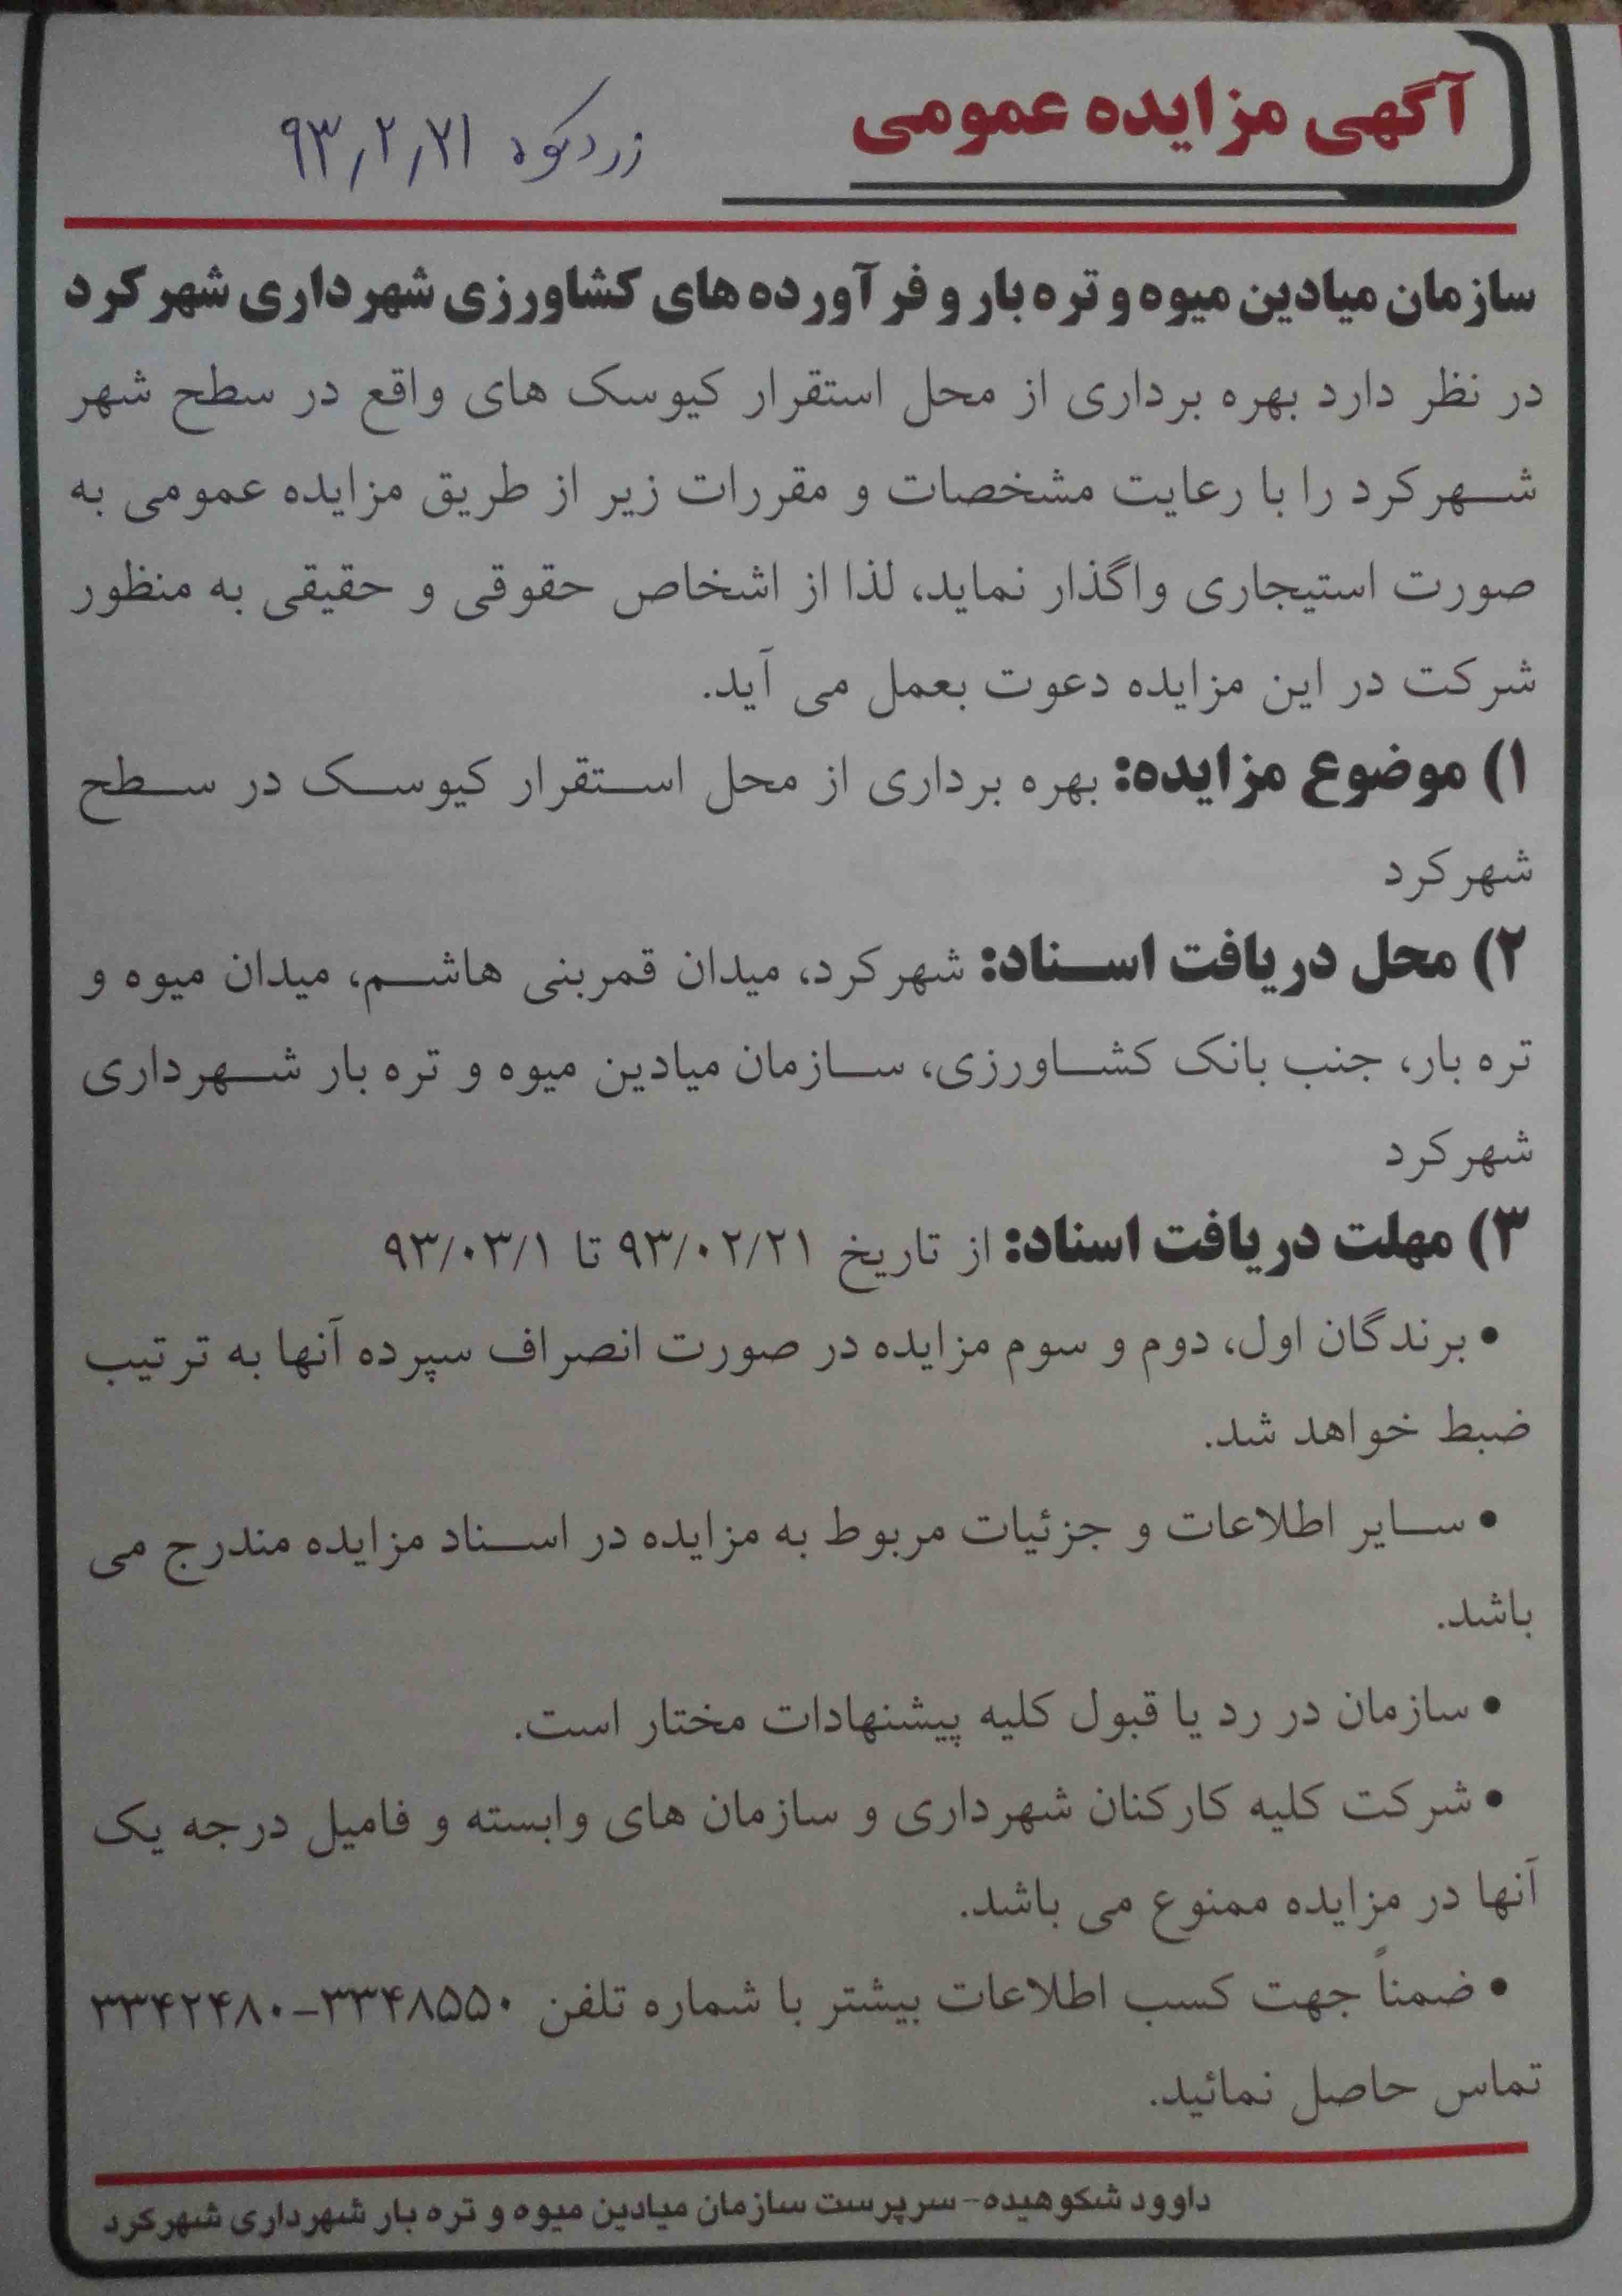 آگهی مزایده عمومی
زردکوه ۹۳٫۲٫۲۱
سازمان میادین میوه و تره بار و فرآورده های کشاورزی شهرداری شهرکرد
در نظر دارد بهره برداری از محل استقرار کیوسک های واقع در سطح شهر
شهرکرد را با رعایت مشخصات و مقررات زیر از طریق مزایده عمومی به
صورت استیجاری واگذار نماید، لذا از اشخاص حقوقی و حقیقی به منظور
شرکت در این مزایده دعوت بعمل می آید.
۱) موضوع مزایده: بهره برداری از محل استقرار کیوسک در سطح
شهرکرد
۲) محل دریافت اسناد: شهرکرد، میدان قمربنی هاشم، میدان میوه و
تره بار، جنب بانک کشاورزی، سازمان میادین میوه و تره بار شهرداری
شهرکرد
۳) مهلت دریافت اسناد: از تاریخ ۹۳/۰۲/۲۱ تا ۹۳/۰۳/۱
• برندگان اول، دوم و سوم مزایده در صورت انصراف سپرده آنها به ترتیب
ضبط خواهد شد.
• سایر اطلاعات و جزئیات مربوط به مزایده در اسناد مزایده مندرج می
باشد.
• سازمان در رد یا قبول کلیه پیشنهادات مختار است.
• شرکت کلیه کارکنان شهرداری و سازمان های وابسته و فامیل درجه یک
آنها در مزایده ممنوع می باشد.
• ضمناً جهت کسب اطلاعات بیشتر با شماره تلفن ۳۳۴۸۵۵۰-۳۳۴۲۴۸۰
تماس حاصل نمائید.
داوود شکوهیده- سرپرست سازمان میادین میوه و تره بار شهرداری شهرکرد